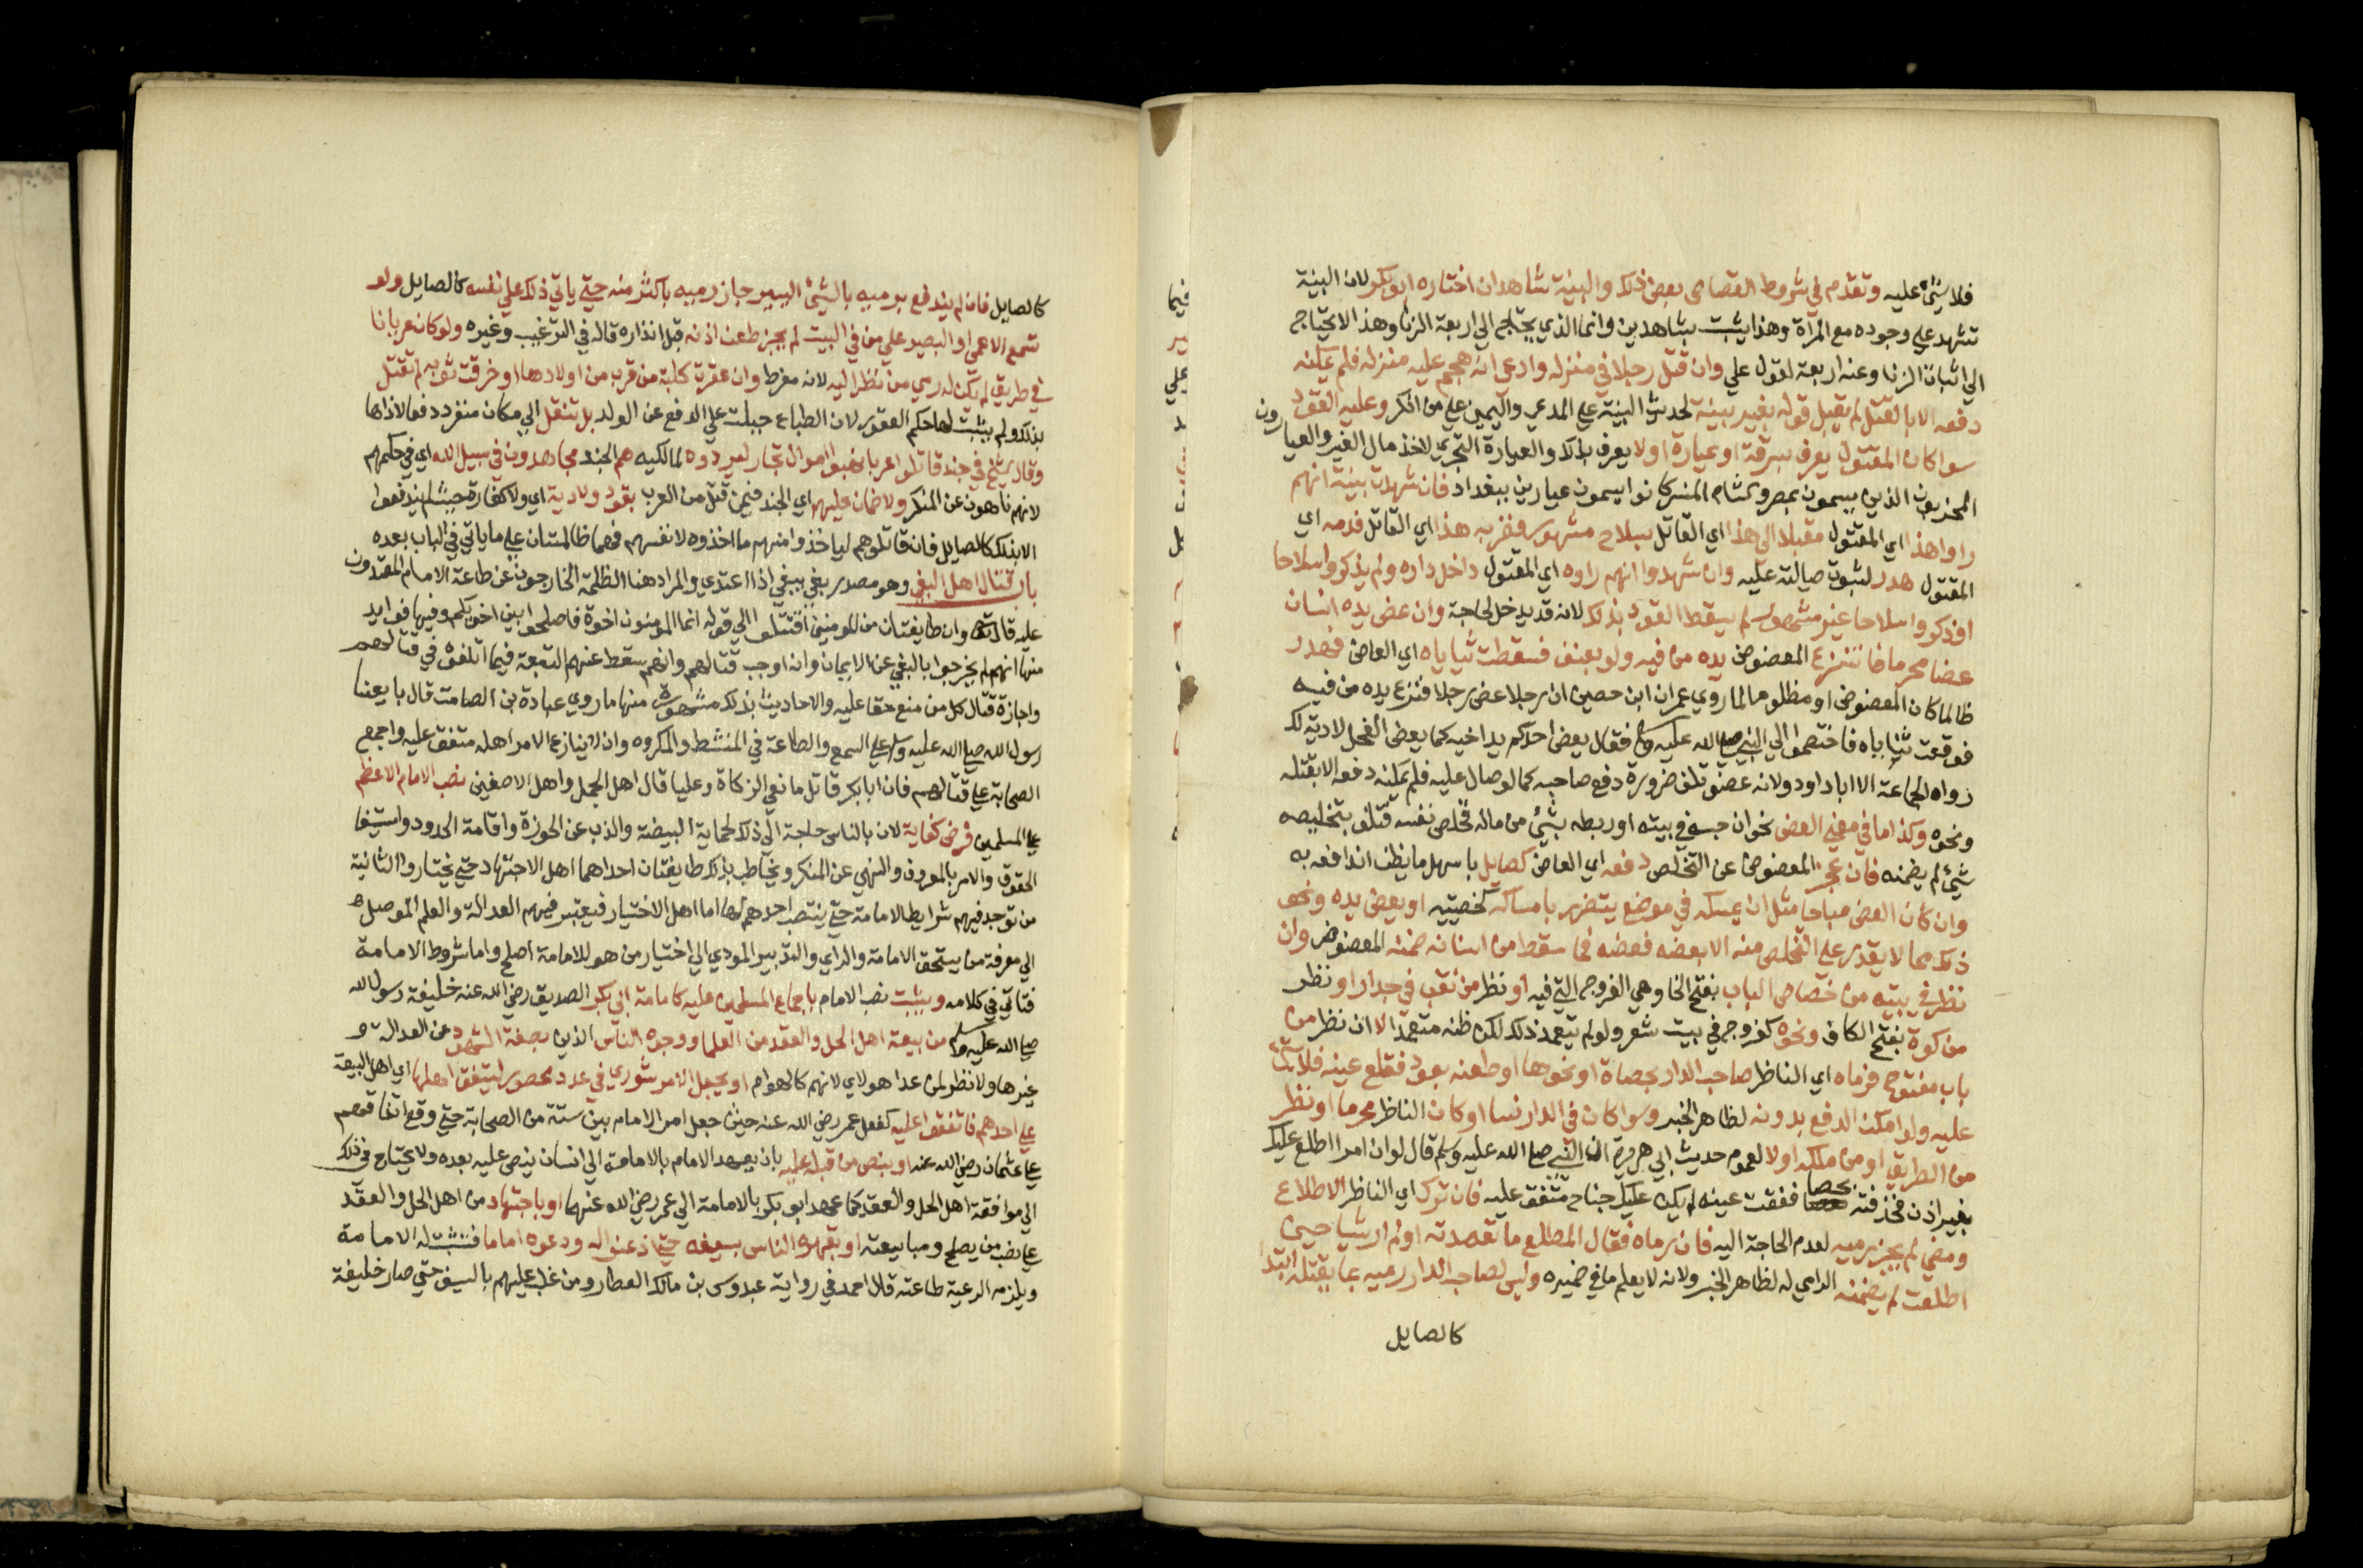 فلا شيء عليه وتقدم في شروط القصاص بعض ذلك والبينة شاهدان اختاره ابو بكر لان البينة
تشهد علي وجوده مع المراة وهذا يثبت بشاهدين وانما الذي يحتاج الي اربعة الزنا وهذا لا يحتاج
الي اثبات الزنا وعنه اربعة لقول علي وان قتل رجلا في منزله وادعي انه هجم عليه منزله فلم يمكنه
دفعه الا بالقتل لم يقبل قوله بغير بينة لحديث البينة علي المدعي واليمين علي من انكر وعليه القود
سوا كان المقتول يعرف بسرقة او عيارة او لا يعرف بذلك والعيارة التجري لاخذ مال الغير والعيارون
المحزبون الذين يسمون بمصر وكشام المنسر كانوا يسمون عيارين ببغداد فان شهدت بينة انهم
راوا هذا اي المقتول مقبلا الي هذا اي القاتل بسلاح مشهور فضربه هذا اي القاتل فدمه اي
المقتول هدر لثبوت صيالته عليه وان شهدوا انهم راوه اي المقتول داخل داره ولم يذكروا سلاحا
او ذكروا سلاحا غير مشهور لم يسقط القود بذلك لانه قد يدخل لحاجة وان عض يده انسان
عضا محرما فانتزع المعضوض يده من فيه ولو بعنف فسقطت ثناياه اي العاض فهدر
ظالما كان المعضوض او مظلوما لما روي عمران ابن حصين ان رجلا عض رجلا فنزع يده من فيه
فوقعت ثناياه فاختصموا الي النبي صلي الله عليه وسلم فقال يعض احدكم يد اخيه كما يعض الفحل لا دية لك
رواه الجماعة الا ابا داود ولانه عضو تلف ضرورة دفع صاحبه كما لو صال عليه فلم يمكنه دفعه الا بقتله
ونحوه وكذا ما في معني العض نحو ان حبسه في بيته او ربطه بشيء من ماله فخلص نفسه فتلف بتخليصه
شيء لم يضمنه فان عجز المعضوض عن التخلص دفعه اي العاض كصايل باسهل ما يظن اندافعه به
وان كان العض مباحا مثل ان يمسكه في موضع يتضرر بامساكه كخصيتيه او يعض يده ونحو
ذلك مما لا يقدر علي التخلص منه الا بعضه فعضه فما سقط من اسنانه ضمنه المعضوض وان
نظر في بيته من خصاص الباب بفتح الخا وهي الفروج التي فيه او نظر من نقب في جدار او نظر
من كوة بفتح الكاف ونحوه كفروج في بيت شعر ولو لم يتعمد ذلك لكن ظنه متعمدا لا ان نظر من
باب مفتوح فرماه اي الناظر صاحب الدار بحصاة او نحوها او طعنه بعود فقلع عينه فلا شيء
عليه ولو امكن الدفع بدونه لظاهر الخبر وسوا كان في الدار نسا او كان الناظر محرما او نظر
من الطريق او من ملكه او لا لعموم حديث ابي هريرة ان النبي صلي الله عليه وسلم قال لو ان امرا اطلع عليك
بغير اذن فخذفته بحصاة ففقت عينه لم يكن عليك جناح متفق عليه فان ترك اي الناظر الاطلاع
ومضي لم يجز رميه لعدم الحاجة اليه فان رماه فقال المطلع ما تعمدته او لم ار شيا حين
اطلعت لم يضمنه الرامي له لظاهر الخبر ولانه لا يعلم ما في ضميره وليس لصاحب الدار رميه بما يقتله ابتدا
كالصايل
كالصايل فان لم يندفع برميه بالشيء اليسير جاز رميه باكثر منه حتي ياتي ذلك علي نفسه كالصايل ولو
تسمع الاعمي او البصير علي من في البيت لم يجز طعن اذنه قبل انذاره قاله في الترغيب وغيره ولو كان عريانا
في طريق لم يكن له رمي من نظر اليه لانه مفرط وان عقرت كلبة من قرب من اولادها او خرقت ثوبه لم تقتل
بذلك ولم يثبت لها حكم العقور لان الطباع جبلت علي الدفع عن الولد بل تنقل الي مكان منفرد دفعا لاذاها
وقال الشيخ في جند قاتلوا عربا نهبوا اموال تجار ليردوه لمالكيه هم الجند مجاهدون في سبيل الله اي في حكمهم
لانهم ناهون عن المنكر ولا ضمان عليهم اي الجند فيمن قتل من العرب بقود ولا دية اي ولا كفارة حيث لم يندفعوا
الا بذلك كالصايل فان قاتلوهم لياخذوا منهم ما اخذوه لانفسهم فهما ظالمتان علي ما ياتي في الباب بعده
باب قتال اهل البغي وهو مصدر بغي يبغي اذا اعتدي والمراد هنا الظلمة الخارجون عن طاعة الامام المعتدون
عليه قال تعالي وان طايفتان من المومنين اقتتلوا الي قوله انما المومنون اخوة فاصلحوا بين اخويكم وفيها فوايد
منها انهم لم يخرجوا بالبغي عن الايمان وانه اوجب قتالهم وانه سقط عنهم التبعة فيما اتلفوه في قتالهم
واجازة قتال كل من منع حقا عليه والاحاديث بذلك مشهورة منها ما روي عبادة بن الصامت قال بايعنا
رسول الله صلي الله عليه وسلم علي السمع والطاعة في المنشط والمكره وان لا ينازع الامر اهله متفق عليه واجمع
الصحابة علي قتالهم فان ابا بكر قاتل مانعي الزكاة وعليا قاتل اهل الجمل واهل الاصفين نصب الامام الاعظم
علي المسلمين فرض كفاية لان بالناس حاجة الي ذلك لحماية البيضة والذب عن الحوزة واقامة الحدود واستيفا
الحقوق والامر بالمعروف والنهي عن المنكر ويخاطب بذلك طايفتان احداهما اهل الاجتهاد حتي يختاروا الثانية
من توجد فيهم شرايط الامامة حتي ينتصب احدهم لها اما اهل الاختيار فيعتبر فيهم العدالة والعلم الموصل
الي معرفة من يستحق الامامة والراي والتدبير المودي الي اختيار من هو للامامة اصلح واما شروط الامامة
فتاتي في كلامه ويثبت نصب الامام باجماع المسلمين عليه كامامة ابي بكر الصديق رضي الله عنه خليفة رسول الله
صلي الله عليه وسلم من بيعة اهل الحل والعقد من العلما ووجوه الناس الذين بصفة الشهود من العدالة و
غيرها ولا نظر لمن عدا هولاي لانهم كالهوام او يجعل الامر شوري في عدد محصور ليتفق اهلها اي اهل البيعة
علي احدهم فاتفقوا عليه كفعل عمر رضي الله عنه حيث جعل امر الامام بين ستة من الصحابة حتي وقع اتفاقهم
علي عثمان رضي الله عنه او بنص من قبله عليه بان يعهد الامام بالامامة الي انسان ينص عليه بعده ولا يحتاج في ذلك
الي موافقة اهل الحل والعقد كما عهد ابو بكر بالامامة الي عمر رضي الله عنهما او باجتهاد من اهل الحل والعقد
علي نصب من يصلح ومبايعته او بقهره الناس بسيفه حتي اذعنوا له ودعوه اماما فتثبت له الامامة
ويلزم الرعية طاعته قال احمد في رواية عبدوس بن مالك العطار ومن غلب عليهم بالسيف حتي صار خليفة
فيما
علي